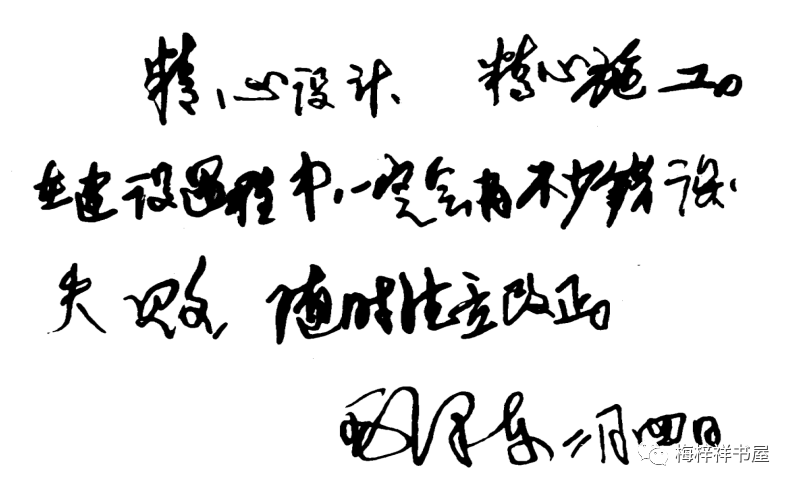 精心设计、精心施工。
在建设过程中,一定会有不少错误、
失败,随时注意改正。
毛泽东 二月四日
梅梓祥书屋